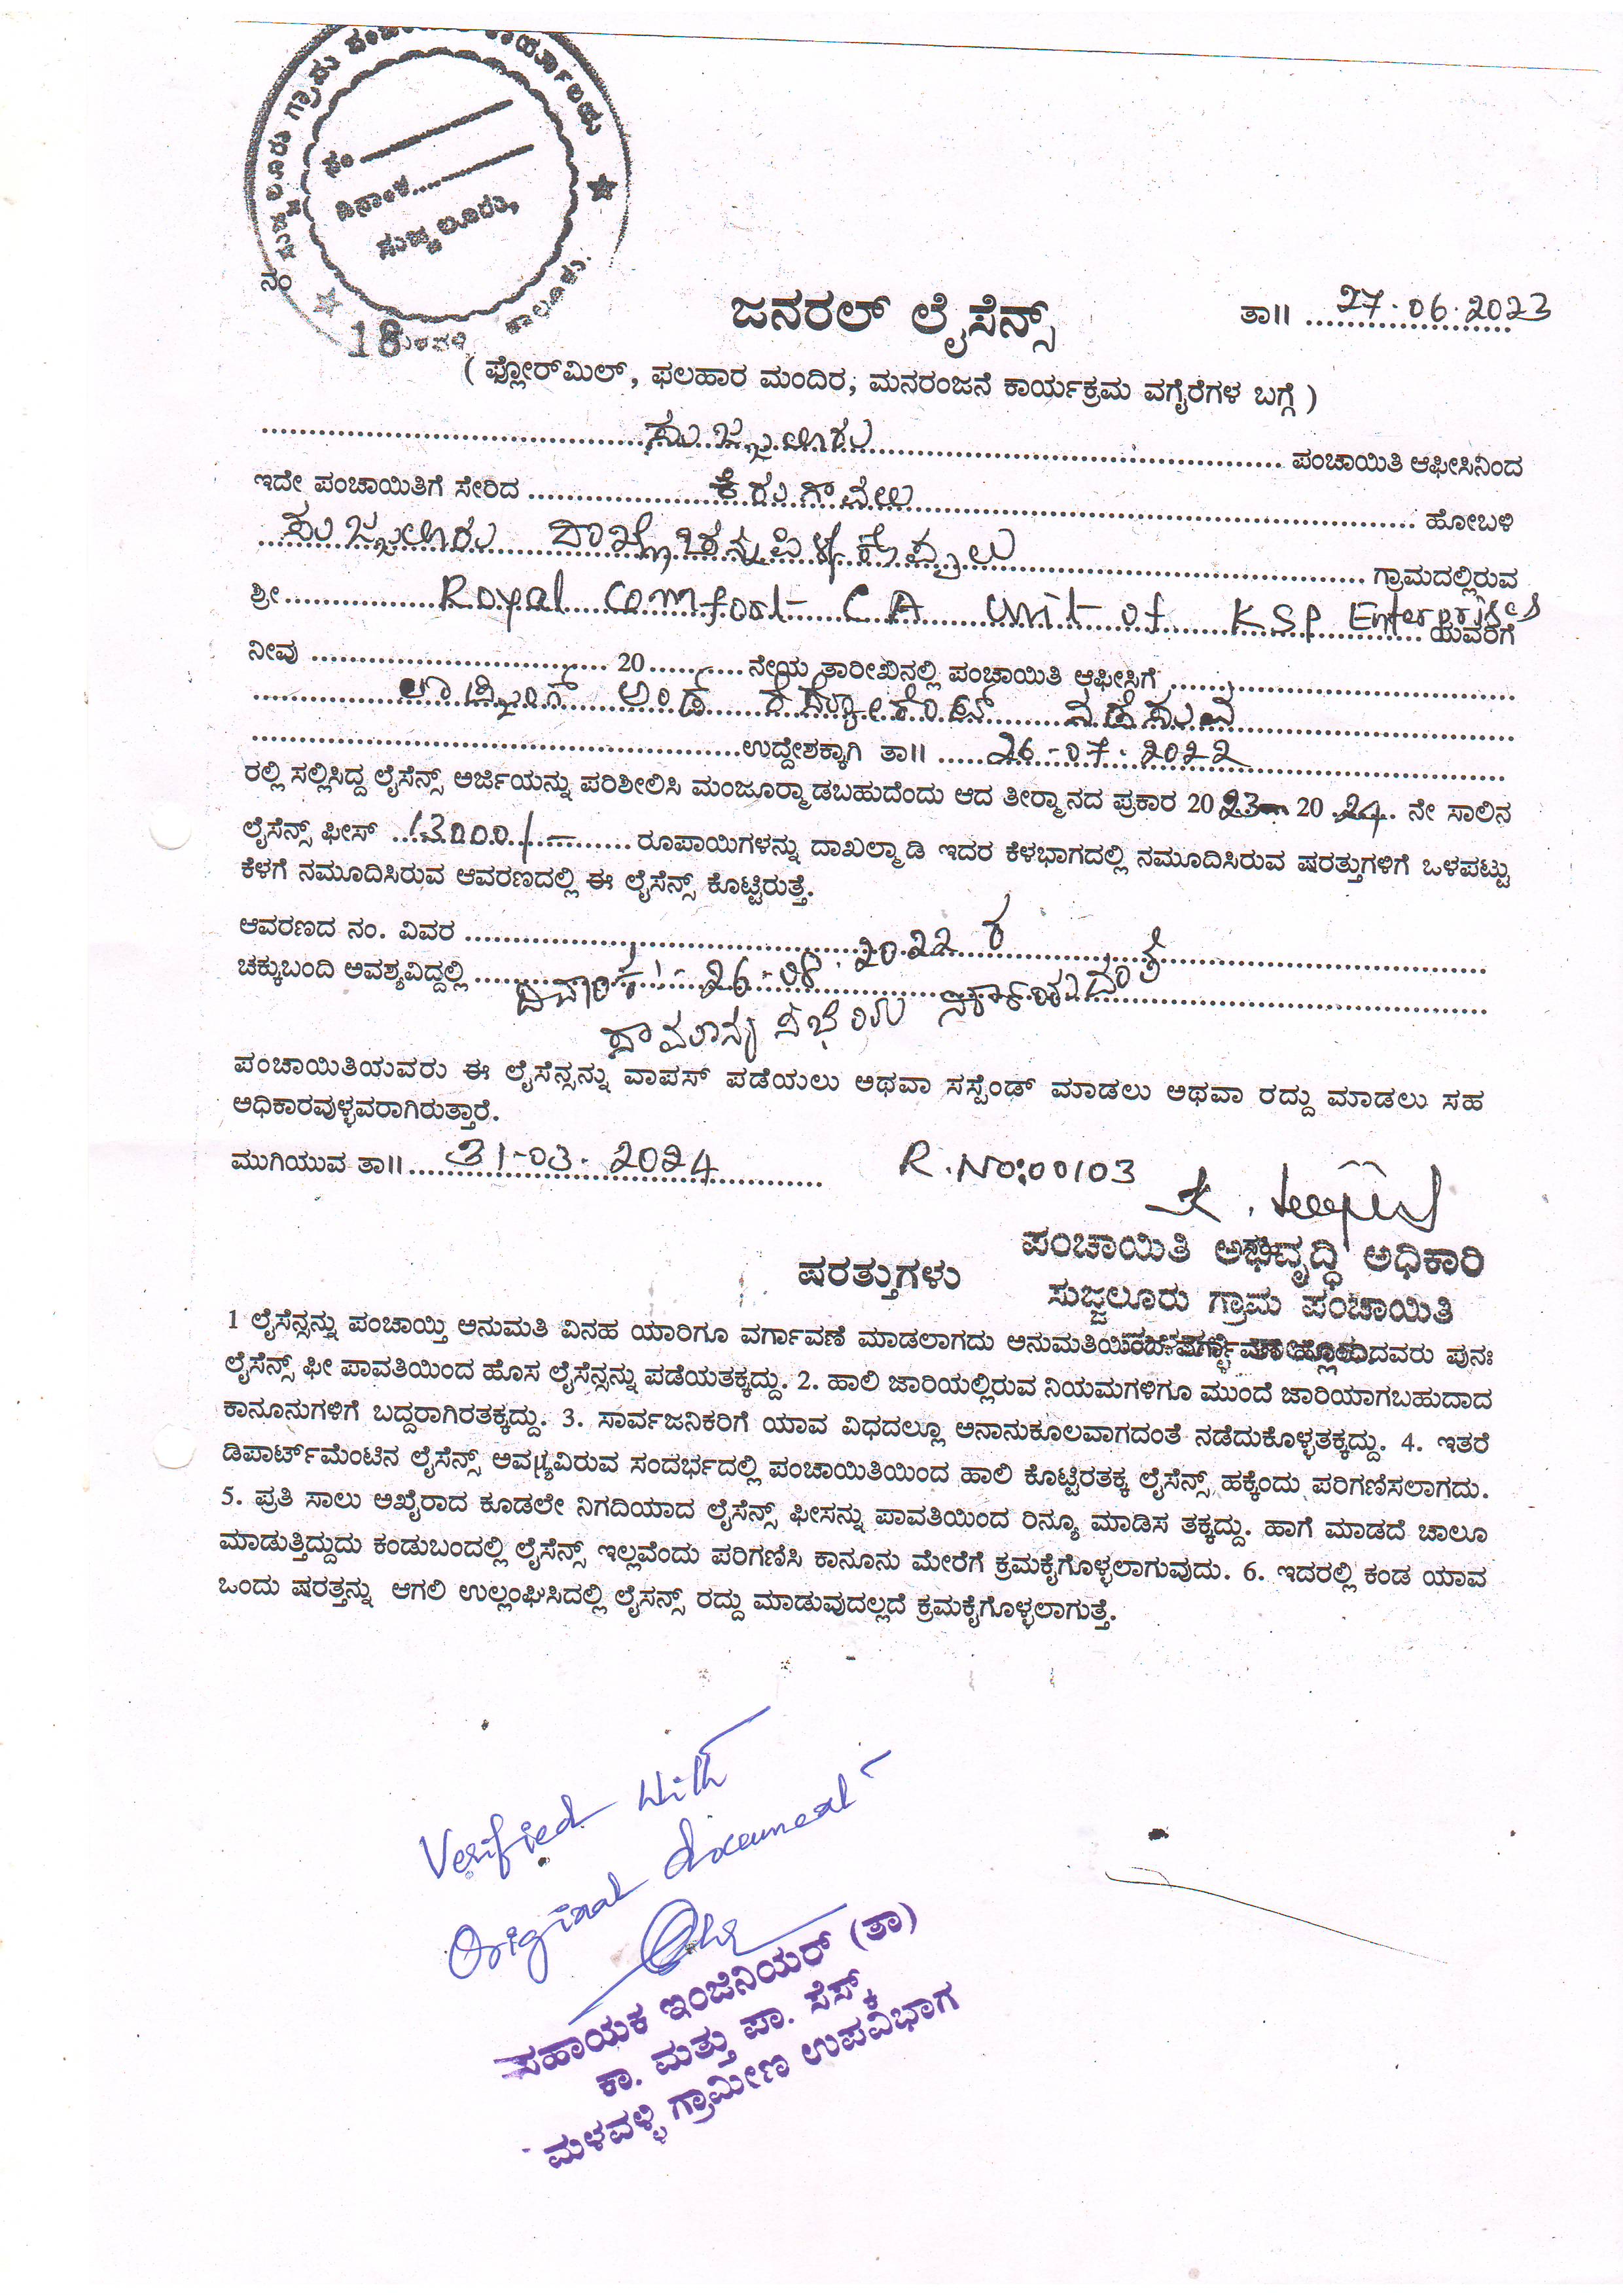 ಸುಜ್ಜಲೂರು ಗ್ರಾಮ ಪಂಚಾಯಿತಿ ಕಾರ್ಯಾಲಯ
ನಂ
ದಿನಾಂಕ
ಸುಜ್ಜಲೂರು,
ತಾಲೂಕು.
ನಂ
18
ಜನರಲ್ ಲೈಸೆನ್ಸ್
ತಾ॥ 27.06.2023
( ಫ್ಲೋರ್‌ಮಿಲ್, ಫಲಹಾರ ಮಂದಿರ, ಮನರಂಜನೆ ಕಾರ್ಯಕ್ರಮ ವಗೈರೆಗಳ ಬಗ್ಗೆ )
ಸುಜ್ಜಲೂರು ಪಂಚಾಯಿತಿ ಆಫೀಸಿನಿಂದ
ಇದೇ ಪಂಚಾಯಿತಿಗೆ ಸೇರಿದ ಕಿರುಗಾವಲು ಹೋಬಳಿ
ಸುಜ್ಜಲೂರು ದಾಖ್ಲೆ ಗ್ರಾಮದಲ್ಲಿರುವ
ಶ್ರೀ Royal Comfort CA Unit of KSP Enterprises ಯವರಿಗೆ
ನೀವು 20 ನೇಯ ತಾರೀಖಿನಲ್ಲಿ ಪಂಚಾಯಿತಿ ಆಫೀಸಿಗೆ
ಲಾಡ್ಜಿಂಗ್ ಅಂಡ್ ರೆಸ್ಟೋರೆಂಟ್ ನಡೆಸುವ
ಉದ್ದೇಶಕ್ಕಾಗಿ ತಾ॥ 26-07-2022
ರಲ್ಲಿ ಸಲ್ಲಿಸಿದ್ದ ಲೈಸೆನ್ಸ್ ಅರ್ಜಿಯನ್ನು ಪರಿಶೀಲಿಸಿ ಮಂಜೂರ್‍ಮಾಡಬಹುದೆಂದು ಆದ ತೀರ್‍ಮಾನದ ಪ್ರಕಾರ 2023 20 24 ನೇ ಸಾಲಿನ
ಲೈಸೆನ್ಸ್ ಫೀಸ್ 13000/- ರೂಪಾಯಿಗಳನ್ನು ದಾಖಲ್ಮಾಡಿ ಇದರ ಕೆಳಭಾಗದಲ್ಲಿ ನಮೂದಿಸಿರುವ ಷರತ್ತುಗಳಿಗೆ ಒಳಪಟ್ಟು
ಕೆಳಗೆ ನಮೂದಿಸಿರುವ ಆವರಣದಲ್ಲಿ ಈ ಲೈಸೆನ್ಸ್ ಕೊಟ್ಟಿರುತ್ತೆ.
ಆವರಣದ ನಂ. ವಿವರ
ಚಕ್ಕುಬಂದಿ ಅವಶ್ಯವಿದ್ದಲ್ಲಿ ದಿನಾಂಕ:- 26-08-2022 ರ
ಸಾಮಾನ್ಯ ಸಭೆಯ
ಪಂಚಾಯಿತಿಯವರು ಈ ಲೈಸೆನ್ಸನ್ನು ವಾಪಸ್ ಪಡೆಯಲು ಅಥವಾ ಸಸ್ಪೆಂಡ್ ಮಾಡಲು ಅಥವಾ ರದ್ದು ಮಾಡಲು ಸಹ
ಅಧಿಕಾರವುಳ್ಳವರಾಗಿರುತ್ತಾರೆ.
ಮುಗಿಯುವ ತಾ॥ 31-03-2024 R.No:00103
ಪಂಚಾಯಿತಿ ಅಭಿವೃದ್ಧಿ ಅಧಿಕಾರಿ
ಸುಜ್ಜಲೂರು ಗ್ರಾಮ ಪಂಚಾಯಿತಿ
ಷರತ್ತುಗಳು
1 ಲೈಸೆನ್ಸನ್ನು ಪಂಚಾಯ್ತಿ ಅನುಮತಿ ವಿನಹ ಯಾರಿಗೂ ವರ್ಗಾವಣೆ ಮಾಡಲಾಗದು ಅನುಮತಿಯಿಂದ ವರ್ಗಾವಣೆ ಹೊಂದಿದವರು ಪುನಃ
ಲೈಸೆನ್ಸ್ ಫೀ ಪಾವತಿಯಿಂದ ಹೊಸ ಲೈಸೆನ್ಸನ್ನು ಪಡೆಯತಕ್ಕದ್ದು. 2. ಹಾಲಿ ಜಾರಿಯಲ್ಲಿರುವ ನಿಯಮಗಳಿಗೂ ಮುಂದೆ ಜಾರಿಯಾಗಬಹುದಾದ
ಕಾನೂನುಗಳಿಗೆ ಬದ್ದರಾಗಿರತಕ್ಕದ್ದು. 3. ಸಾರ್ವಜನಿಕರಿಗೆ ಯಾವ ವಿಧದಲ್ಲೂ ಅನಾನುಕೂಲವಾಗದಂತೆ ನಡೆದುಕೊಳ್ಳತಕ್ಕದ್ದು. 4. ಇತರೆ
ಡಿಪಾರ್ಟ್‌ಮೆಂಟಿನ ಲೈಸೆನ್ಸ್ ಅವµ್ಯವಿರುವ ಸಂದರ್ಭದಲ್ಲಿ ಪಂಚಾಯಿತಿಯಿಂದ ಹಾಲಿ ಕೊಟ್ಟಿರತಕ್ಕ ಲೈಸೆನ್ಸ್ ಹಕ್ಕೆಂದು ಪರಿಗಣಿಸಲಾಗದು.
5. ಪ್ರತಿ ಸಾಲು ಅಖೈರಾದ ಕೂಡಲೇ ನಿಗದಿಯಾದ ಲೈಸೆನ್ಸ್ ಫೀಸನ್ನು ಪಾವತಿಯಿಂದ ರಿನ್ಯೂ ಮಾಡಿಸ ತಕ್ಕದ್ದು. ಹಾಗೆ ಮಾಡದೆ ಚಾಲೂ
ಮಾಡುತ್ತಿದ್ದುದು ಕಂಡುಬಂದಲ್ಲಿ ಲೈಸೆನ್ಸ್ ಇಲ್ಲವೆಂದು ಪರಿಗಣಿಸಿ ಕಾನೂನು ಮೇರೆಗೆ ಕ್ರಮಕೈಗೊಳ್ಳಲಾಗುವುದು. 6. ಇದರಲ್ಲಿ ಕಂಡ ಯಾವ
ಒಂದು ಷರತ್ತನ್ನು ಆಗಲಿ ಉಲ್ಲಂಘಿಸಿದಲ್ಲಿ ಲೈಸನ್ಸ್ ರದ್ದು ಮಾಡುವುದಲ್ಲದೆ ಕ್ರಮಕೈಗೊಳ್ಳಲಾಗುತ್ತೆ.
Verified with
Original document
ಸಹಾಯಕ ಇಂಜಿನಿಯರ್ (ತಾ)
ಕಾ. ಮತ್ತು ಪಾ. ಸೆಸ್ಕ್
ಮಳವಳ್ಳಿ ಗ್ರಾಮೀಣ ಉಪವಿಭಾಗ